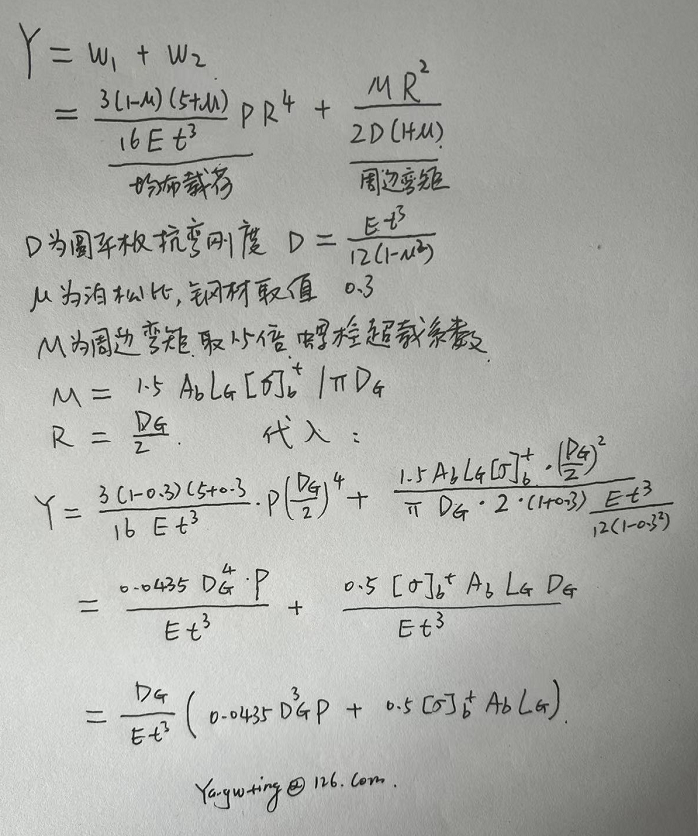 Y = w₁ + w₂
= 3(1-μ)(5+μ)/16Et³ PR⁴ + MR²/2D(1+μ)
均布载荷 周边弯矩
D为圆平板抗弯刚度 D = Et³/12(1-μ²)
μ为泊松比,钢材取值 0.3
M为周边弯矩,取1.5倍螺栓超载系数
M = 1.5 A_b L_G [σ]_b^t / π D_G
R = D_G/2. 代入:
Y = 3(1-0.3)(5+0.3/16 Et³ · P(D_G/2)⁴ + 1.5 A_b L_G [σ]_b^t · (D_G/2)²/π D_G · 2 · (1+0.3) Et³/12(1-0.3²)
= 0.0435 D_G⁴ · P/Et³ + 0.5 [σ]_b^t A_b L_G D_G/Et³
= D_G/Et³ ( 0.0435 D_G³ P + 0.5 [σ]_b^t A_b L_G ).